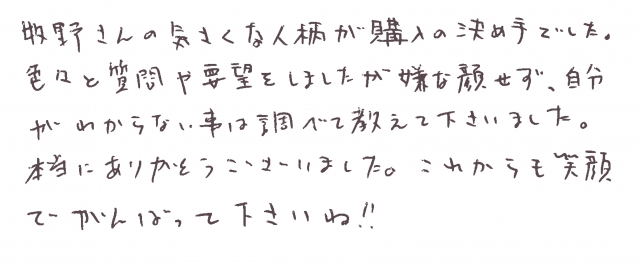 牧野さんの気さくな人柄が購入の決め手でした。
色々と質問や要望をしましたが嫌な顔せず、自分
がわからない事は調べて教えて下さいました。
本当にありがとうございました。これからも笑顔
でがんばって下さいね!!